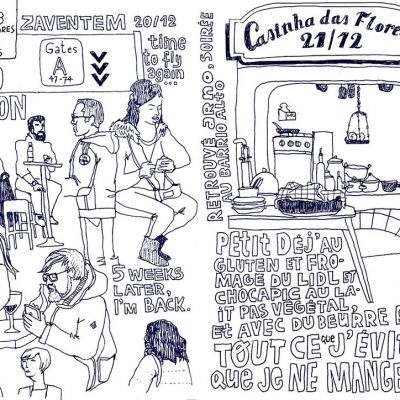 ARES
ZAVENTEM 20/12
Gates
A
47-74
time
to fly
again
...
ON
5 WEEKS
LATER,
I'M BACK.
Casinha das Flore
21/12
RETROUVÉ Jarmo, SOIRÉE
AU BARRIO ALTO
Petit DÉJ' AU
GLUTEN ET FRO-
MAGE DU LIDL ET
CHOCAPIC AU LA-
IT PAS VÉGÉTAL,
Et AVEC DU BEURRE
TOUT CE que J'ÉVIT
que Je NE MANGE